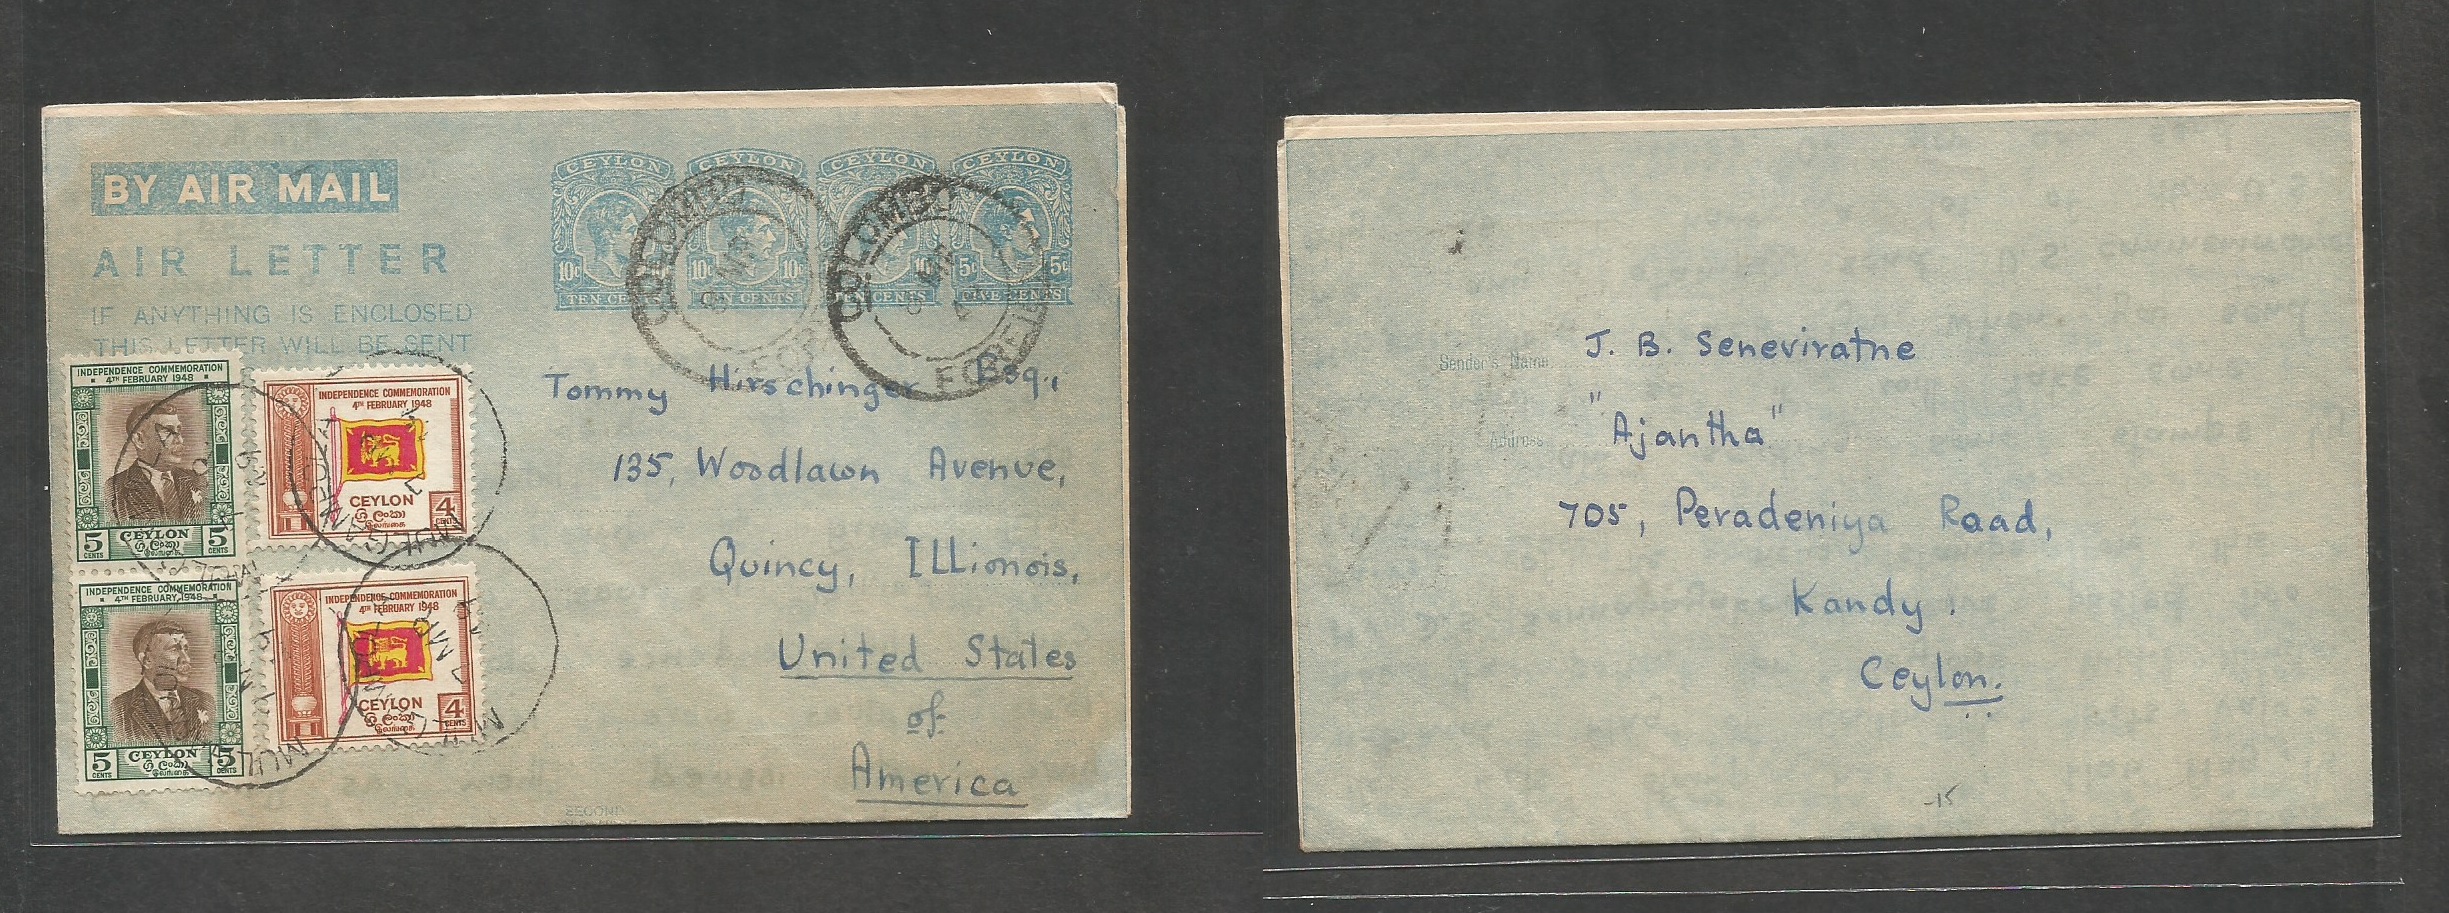 BY AIR MAIL
AIR LETTER
IF ANYTHING IS ENCLOSED
THIS LETTER WILL BE SENT
CEYLON CEYLON CEYLON CEYLON
10c 10c 10c 10 5c 5c
TEN CENTS CENTS FIVE CENTS
COLOMBO
COLOMBO
INDEPENDENCE COMMEMORATION
4TH FEBRUARY 1948
5 CENTS CEYLON 5 CENTS
ශ්‍රී ලංකා
இலங்கை
INDEPENDENCE COMMEMORATION
4TH FEBRUARY 1948
CEYLON
4 CENTS
ශ්‍රී ලංකා
இலங்கை
INDEPENDENCE COMMEMORATION
4TH FEBRUARY 1948
5 CENTS CEYLON 5 CENTS
ශ්‍රී ලංකා
இலங்கை
INDEPENDENCE COMMEMORATION
4TH FEBRUARY 1948
CEYLON
4 CENTS
ශ්‍රී ලංකා
இலங்கை
Tommy Hirschinger Esq.,
135, Woodlawn Avenue,
Quincy, ILLionois,
United States
of
America
SECOND
Sender's Name
J. B. Seneviratne
Address
"Ajantha"
705, Peradeniya Road,
Kandy.
Ceylon.
-15